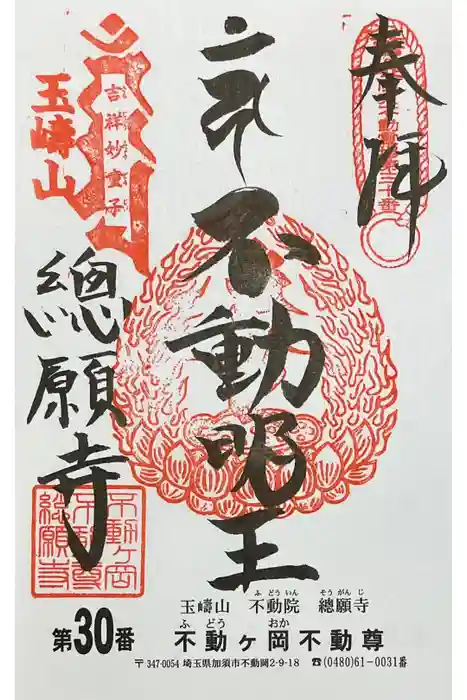 奉拝
不動明王
吉祥妙童子
玉嶹山
總願寺
不動ヶ岡
不動尊
総願寺
玉嶹山 不動院 總願寺
ふどういん そうがんじ
第30番 不動ヶ岡不動尊
ふどう おか
〒347-0054 埼玉県加須市不動岡2-9-18 ☎(0480)61-0031番